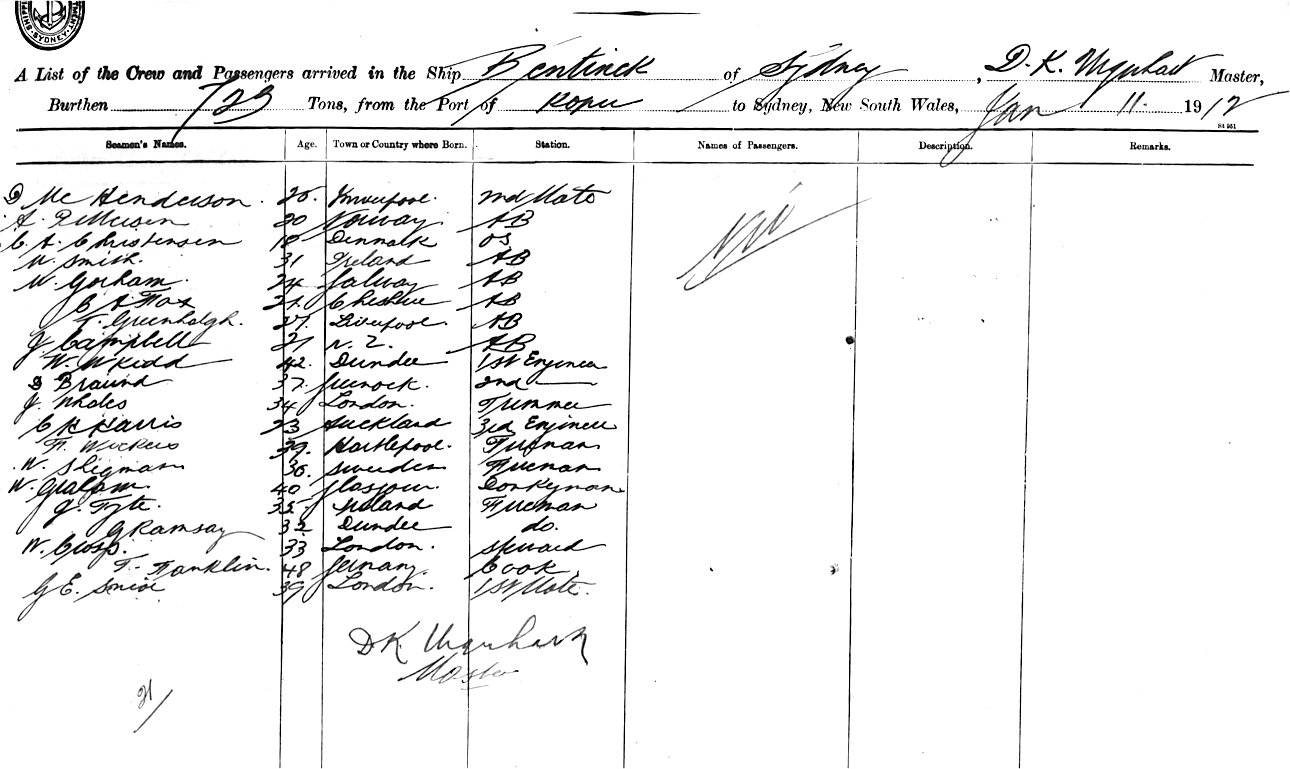 SHIPPING
SYDNEY
A List of the Crew and Passengers arrived in the Ship Bentinck of Sydney, D. K. Urquhart Master,
Burthen 723 Tons, from the Port of Kopu to Sydney, New South Wales, Jan 11 1912
S4 951
Seamen's Names. Age. Town or Country where Born. Station. Names of Passengers. Description. Remarks.
D Mc Henderson. 26. Liverpool. 2nd Mate Nil
A. Pettersen 20 Norway AB
C. A. Christensen 18 Denmark OS
W Smith. 31 Ireland AB
W. Gorham 24 Galway AB
C A Fox 21. Cheshire AB
T. Greenhalgh. 27. Liverpool. AB
J Campbell 21 N. Z. AB
W. W Kidd 42. Dundee 1st Engineer
D Braund 37. Greenock. 2nd
J. 34 London. Trimmer
C K Harris 23 Auckland 3rd Engineer
39. Hartlepool. Fireman
W. 36. Sweden Fireman
W. Graham 40 Glasgow. Donkeyman
J. Tyte. 32 Ireland Fireman
G Ramsay 32 Dundee do.
W. 33 London. Steward
T. Franklin. 48 Germany. Cook
G E. 39 London. 1st Mate.
D K Urquhart
Master
21